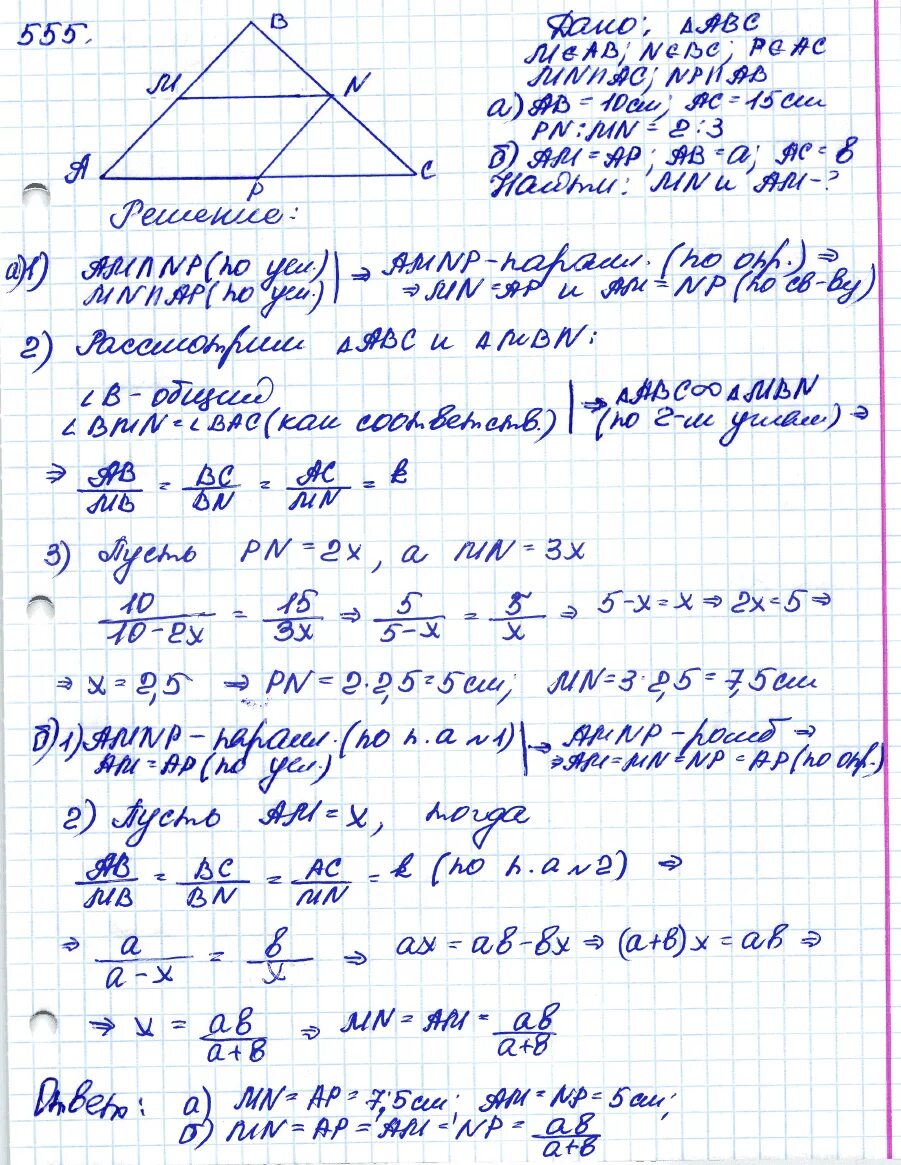 555.
B
M
N
A
P
C
Дано: △ABC
M∈AB; N∈BC; P∈AC
MN∩AC; NP∩AB
а) AB = 10см; AC = 15см
PN : MN = 2 : 3
б) AM = AP; AB = a; AC = в
Найти: MN и AM - ?
Решение:
а)1) AM∩NP (по усл.) | ⇒ AMNP - парал. (по опр.) ⇒
MN∩AP (по усл.) | ⇒ MN = AP и AM = NP (по св-ву)
2) Рассмотрим △ABC и △MBN:
∠B - общий | ⇒ △ABC∞△MBN
∠BMN = ∠BAC (как соответств.) | (по 2-м углам) ⇒
⇒ AB/MB = BC/BN = AC/MN = k
3) Пусть PN = 2x, а MN = 3x
10/(10-2x) = 15/3x ⇒ 5/(5-x) = 5/x ⇒ 5-x = x ⇒ 2x = 5 ⇒
⇒ x = 2,5 ⇒ PN = 2·2,5 = 5см; MN = 3·2,5 = 7,5см
б)1) AMNP - парал. (по п.а №1) | ⇒ AMNP - ромб ⇒
AM = AP (по усл.) | ⇒ AM = MN = NP = AP (по опр.)
2) Пусть AM = x, тогда
AB/MB = BC/BN = AC/MN = k (по п.а №2) ⇒
⇒ a/(a-x) = в/x ⇒ ax = aв - вx ⇒ (a+в)x = aв ⇒
⇒ x = aв/(a+в) ⇒ MN = AM = aв/(a+в)
Ответ: а) MN = AP = 7,5см; AM = NP = 5см;
б) MN = AP = AM = NP = aв/(a+в)